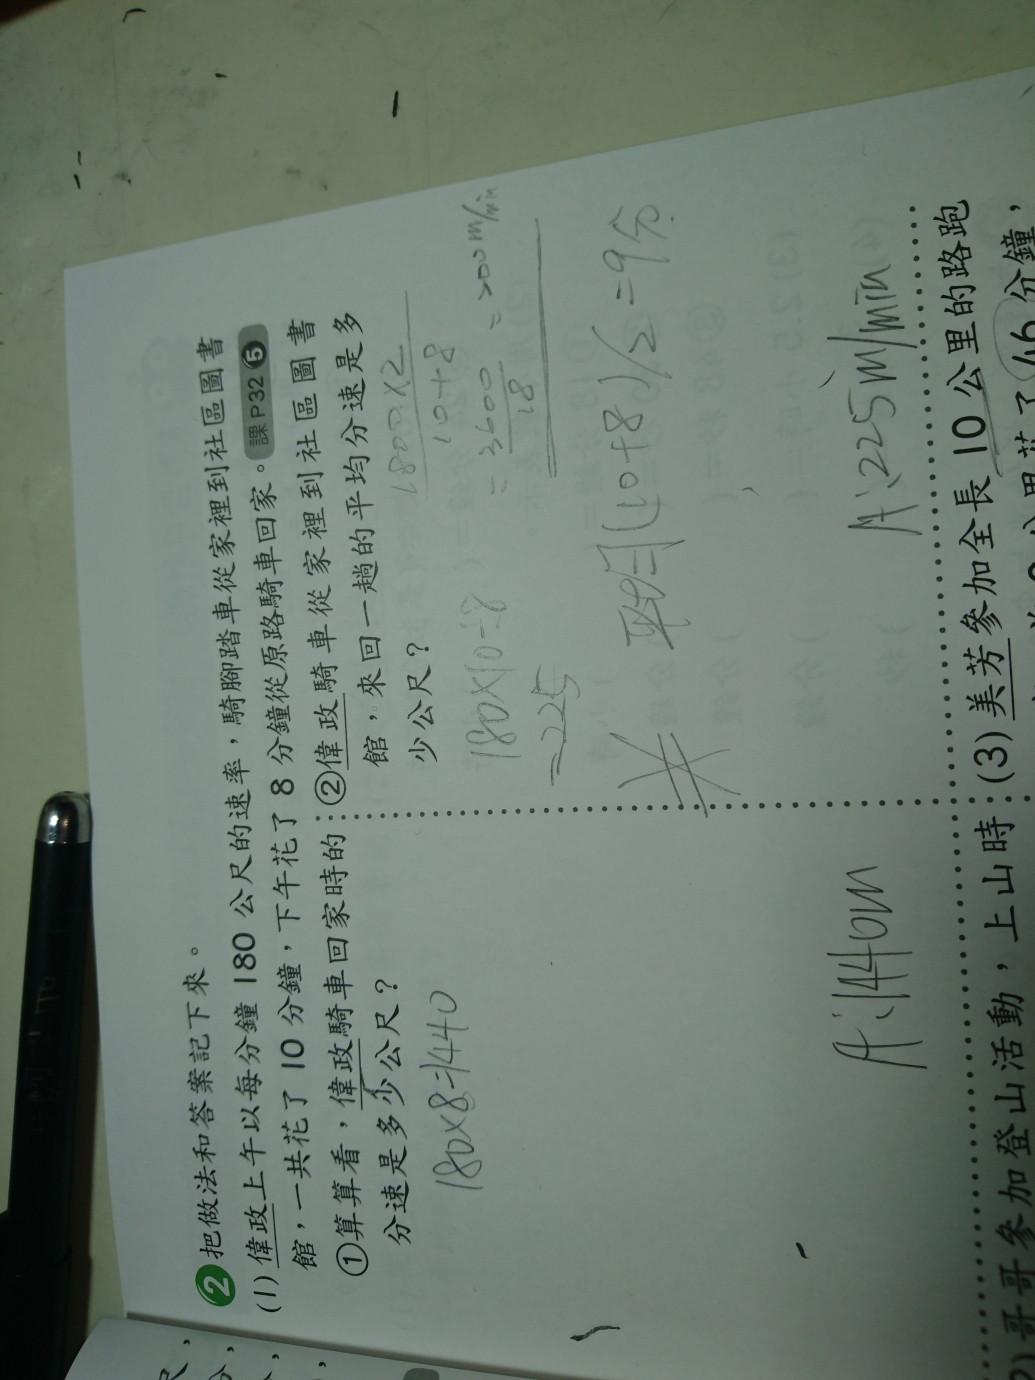 2 把做法和答案記下來。
(1) 偉政上午以每分鐘 180 公尺的速率，騎腳踏車從家裡到社區圖書
館，一共花了 10 分鐘，下午花了 8 分鐘從原路騎車回家。課P32 5
①算算看，偉政騎車回家時的
分速是多少公尺？
180×8=1440
A:1440m
②偉政騎車從家裡到社區圖書
館，來回一趟的平均分速是多
少公尺？
1800×2
10+8
= 3600
18
= 200m/min
180×10÷8
=225
(10+8)/2=9分
A:225m/min
(3) 美芳參加全長 10 公里的路跑
46分鐘，
哥哥參加登山活動，上山時